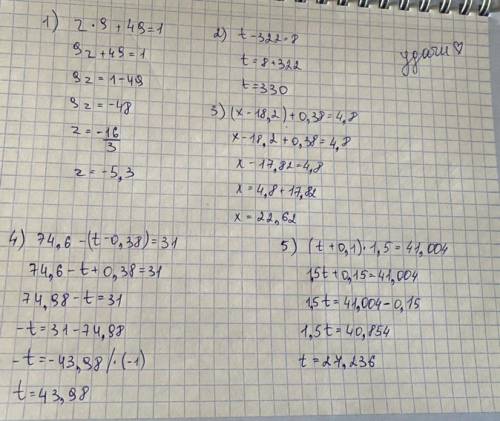 1) z · 9 + 49 = 1
9z + 49 = 1
9z = 1 - 49
9z = -48
z = -16/3
z = -5,3
2) t - 322 = 8
t = 8 + 322
t = 330
удачи♡
3) (x - 18,2) + 0,38 = 4,8
x - 18,2 + 0,38 = 4,8
x - 17,82 = 4,8
x = 4,8 + 17,82
x = 22,62
4) 74,6 - (t - 0,38) = 31
74,6 - t + 0,38 = 31
74,98 - t = 31
-t = 31 - 74,98
-t = -43,98 / · (-1)
t = 43,98
5) (t + 0,1) · 1,5 = 41,004
1,5t + 0,15 = 41,004
1,5t = 41,004 - 0,15
1,5t = 40,854
t = 27,236